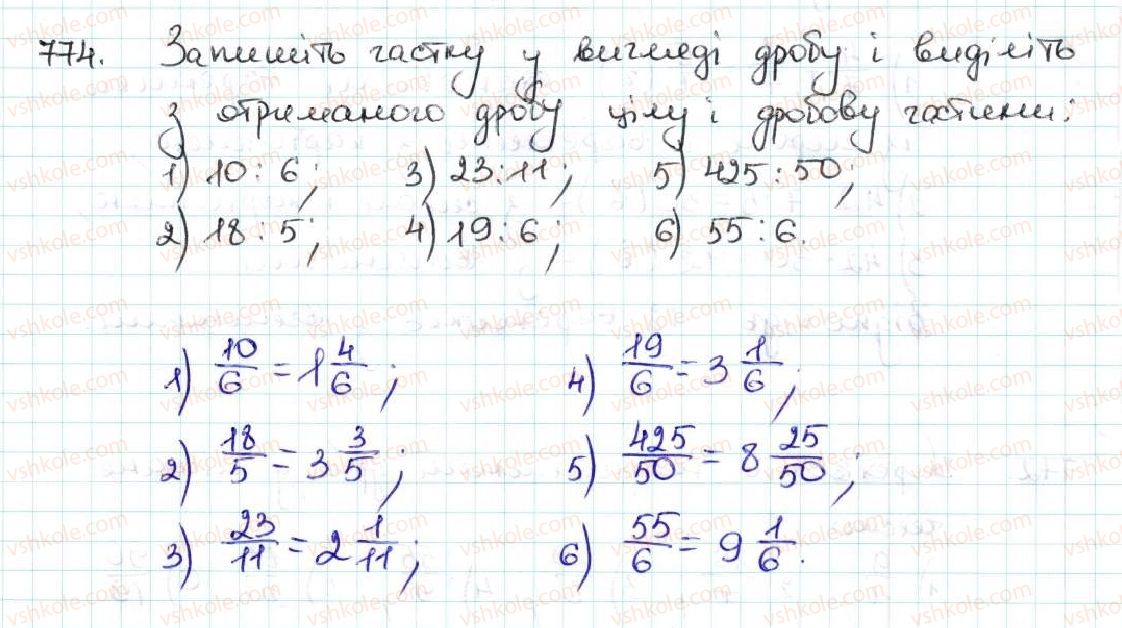 774. Запишіть частку у вигляді дробу і виділіть
з отриманого дробу цілу і дробову частини:
1) 10 : 6; 3) 23 : 11; 5) 425 : 50;
2) 18 : 5; 4) 19 : 6; 6) 55 : 6.
1) 10/6 = 1 4/6; 4) 19/6 = 3 1/6;
2) 18/5 = 3 3/5; 5) 425/50 = 8 25/50;
3) 23/11 = 2 1/11; 6) 55/6 = 9 1/6.
vshkole.com